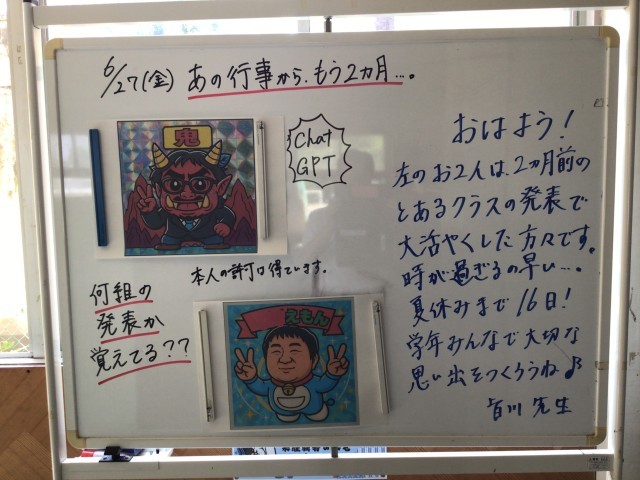 6/27(金) あの行事から、もう2ヵ月…。
鬼
Chat
GPT
本人の許可は得ています。
何組の
発表か
覚えてる??
えもん
おはよう!
左のお2人は、2ヵ月前の
とあるクラスの発表で
大活やくした方々です。
時が過ぎるの早い…。
夏休みまで16日!
学年みんなで大切な
思い出をつくろうね♪
皆川先生